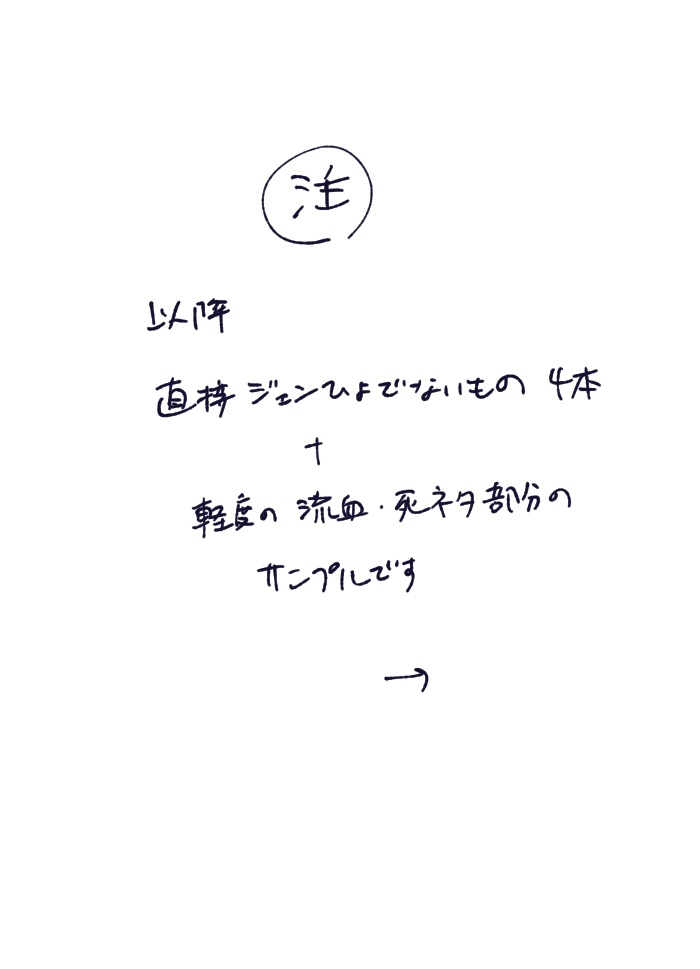 注
以降
直接ジェンひよでないもの 4本
+
軽度の 流血・死ネタ部分の
サンプルです
→